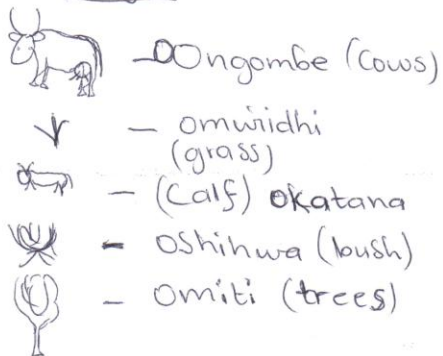 - Oongombe (Cows)
- omwiidhi
(grass)
- (Calf) okatana
- oshihwa (bush)
- omiti (trees)